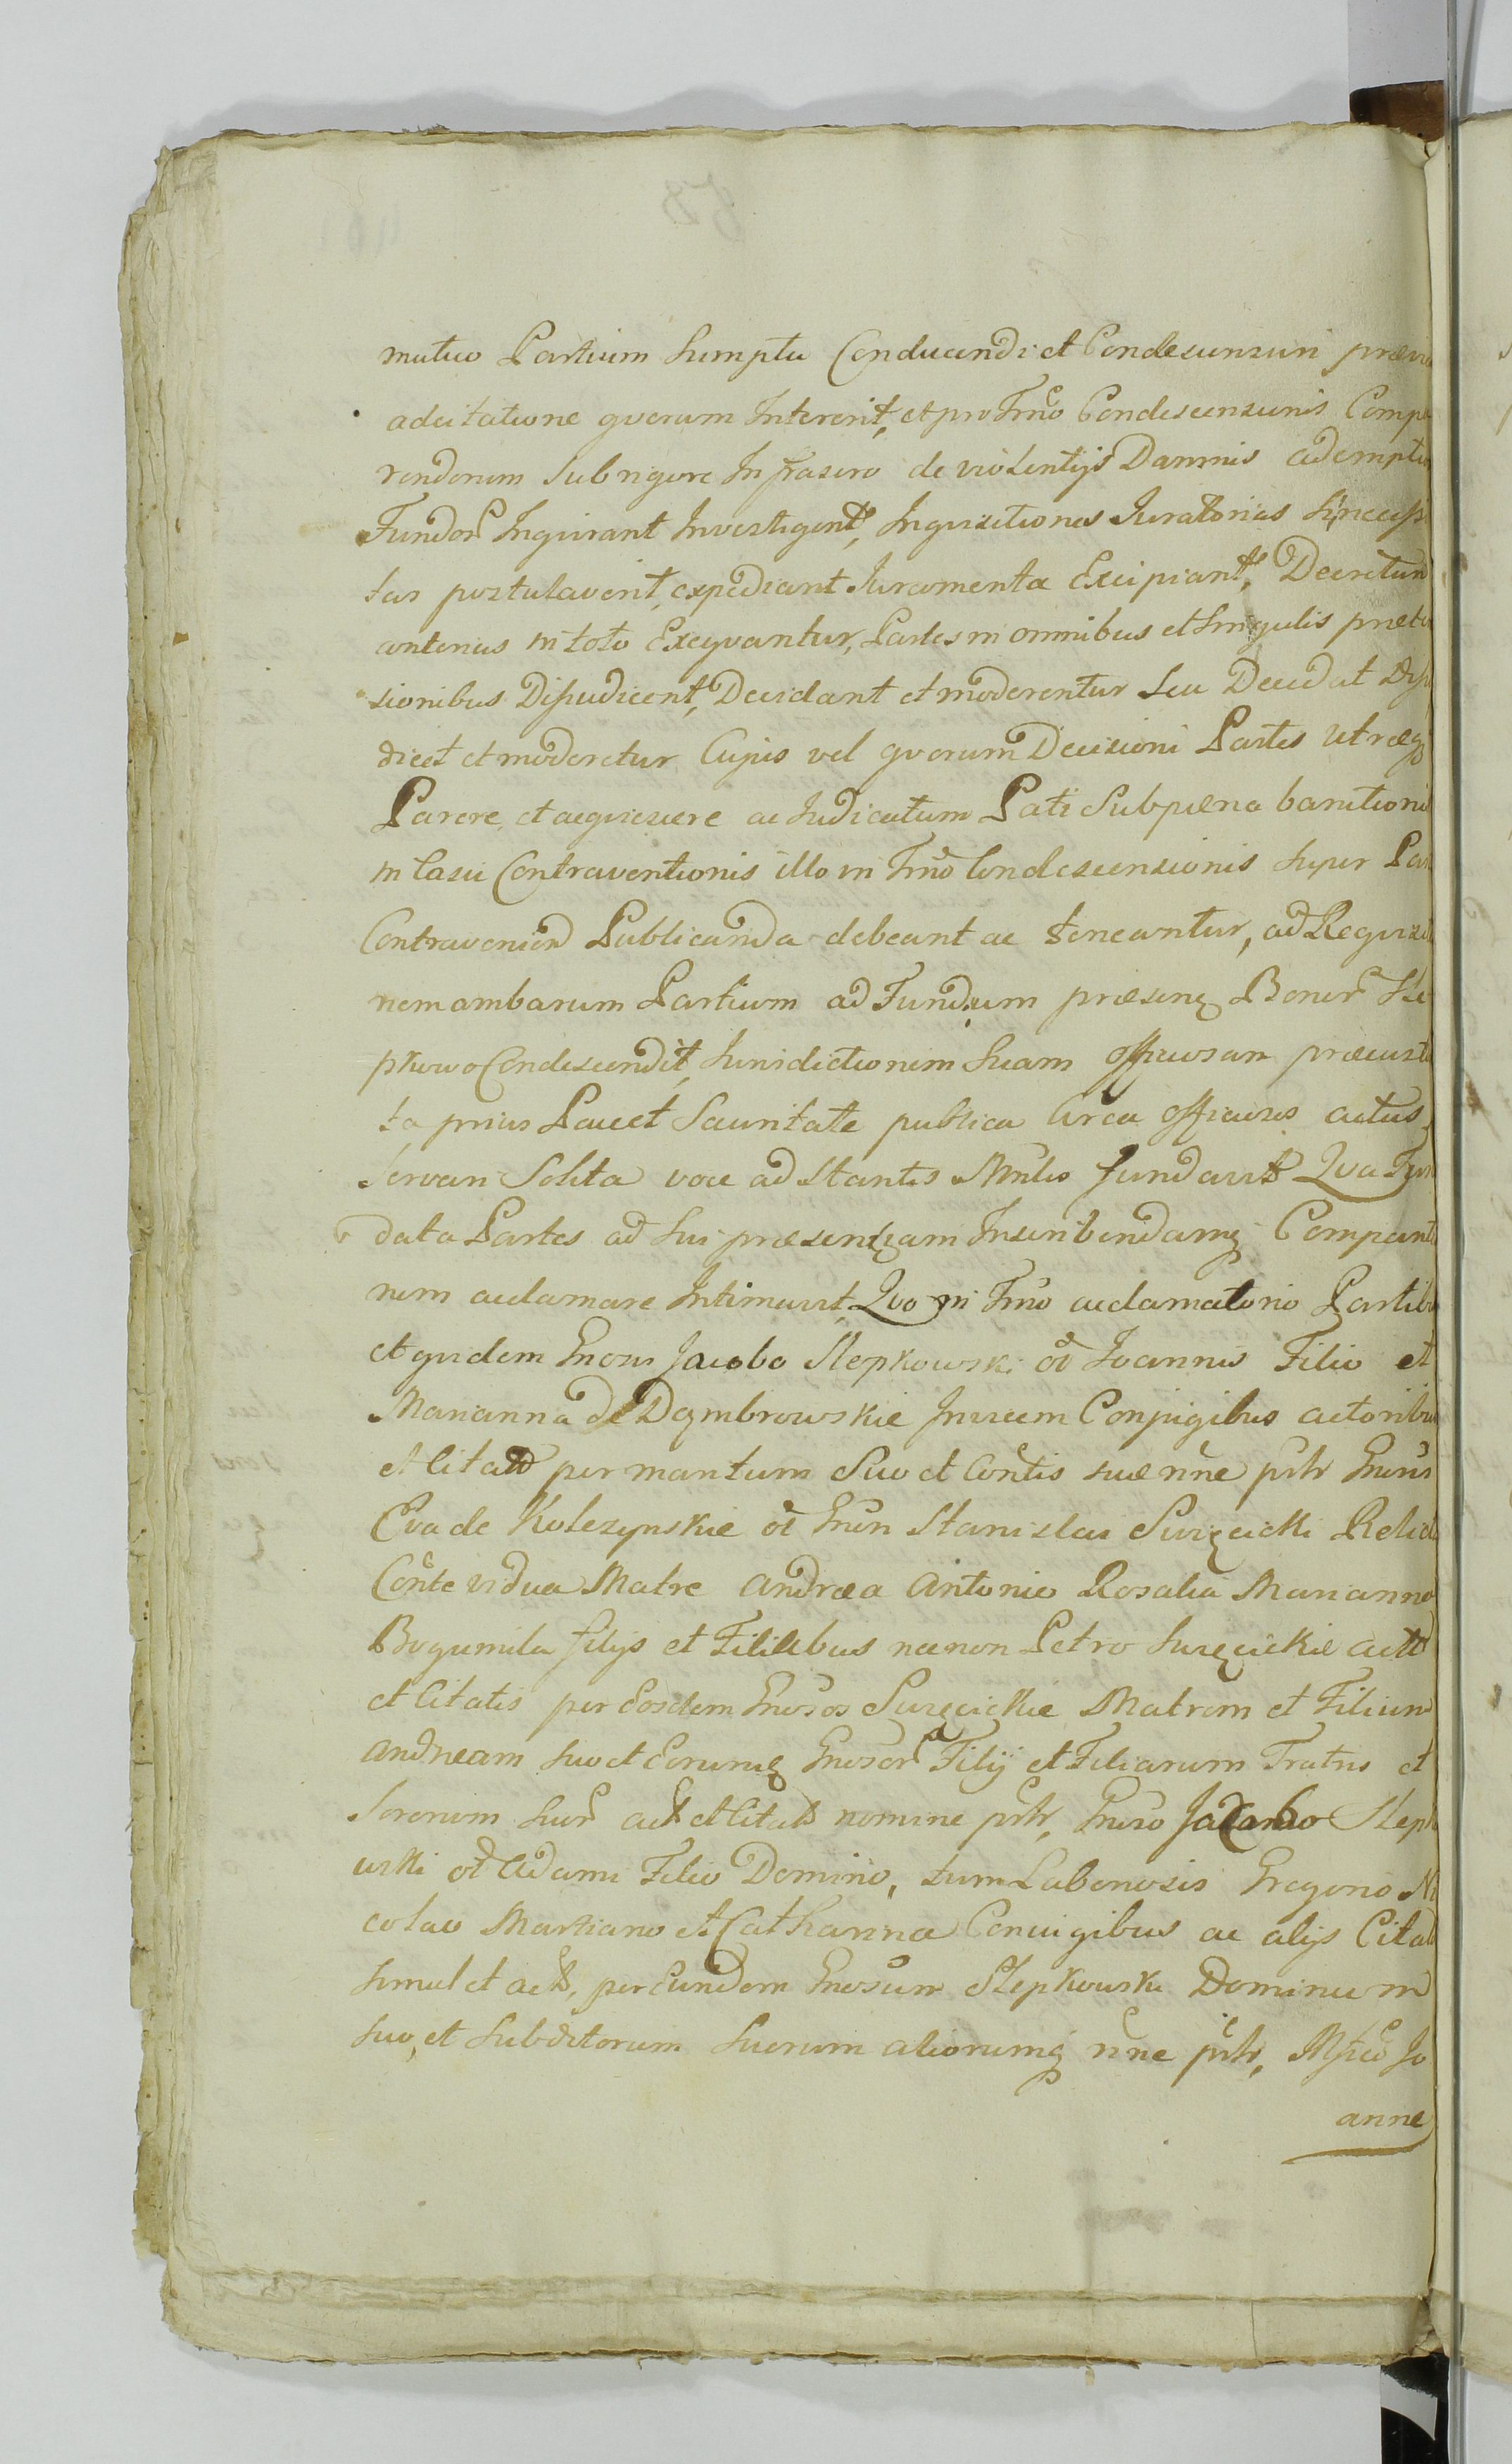 mutuo Partium Sumptu Conducendi et Condescensuri prævia
adcitatione qvorum Intererit, et pro Trnõ Condescensionis Compa
rendorum Sub rigore Infrascro de violentijs Damnis ademptio
Fundor Inqvirant Investigent, Inqvisitiones Juratorias Si necessi
tas postulaverit, expediant Juramenta Excipiant, Decretum
antenus in toto Exeqvantur, Partes in omnibus et Singulis præten
sionibus Dijudicent, Decidant et moderentur Seu Decidat Diju
dicet et moderetur Cujus vel qvorum Decisioni Partes Utræq
Parere, et acqviescere ac Judicatum Pati Sub pæna banitionis
in Casu Contraventionis illo in Trnõ Condescensionis Super Par
Contravenien Publicanda debeant ac teneantur, ad Reqvisitio
nem ambarum Partium ad Fundum præsenq Bonor Sle
pkowo Condescendit, Jurisdictionem Suam officiosam præcusto
ta prius Pace et Securitate publica Circa officiosos actus
Servari Solita voce adstantis Mnlis fundavit Qva Fun
data Partes ad Sui præsentiam Inscribendamq Comparitio
nem acclamare Intimavit, Qvo in Trnõ acclamatorio Partibus
et qvidem Gnoso Jacobo Slepkowski oõ Joannis Filio et
Marianna de Dąmbrowskie Invicem Conjugibus actoribus
et Citatts per maritum Suo et Cõntis suæ nñe pñtr Gneris
Eva de Kolczynskie oõ Gnen Stanislai Swięcicki Relicta
Cõnte vidua Matre Andræa Antonio Rosalia Marianna
Bogumila filijs et Filiabus necnon Petro Swięcickie actt
et Citatis per Eosdem Gnosos Swięcickie Matrem et Filium
Andream Suo et Eorumq Gnosor Filij et Filiarum Fratris et
Sororum Suor act et Citats nomine pñtr, Gnoso Jacobo Slepk
wski oõ Adami Filio Domino, tum Laboriosis Gregorio Ni
colao Martiano et Catharina Conjugibus ac alijs Citatt
simul et actt, per Eundem Gnosum Slepkowski Dominum
Suo, et Subditorum Suorum aliorumq nñe pñtr, Mfico Jo
anne